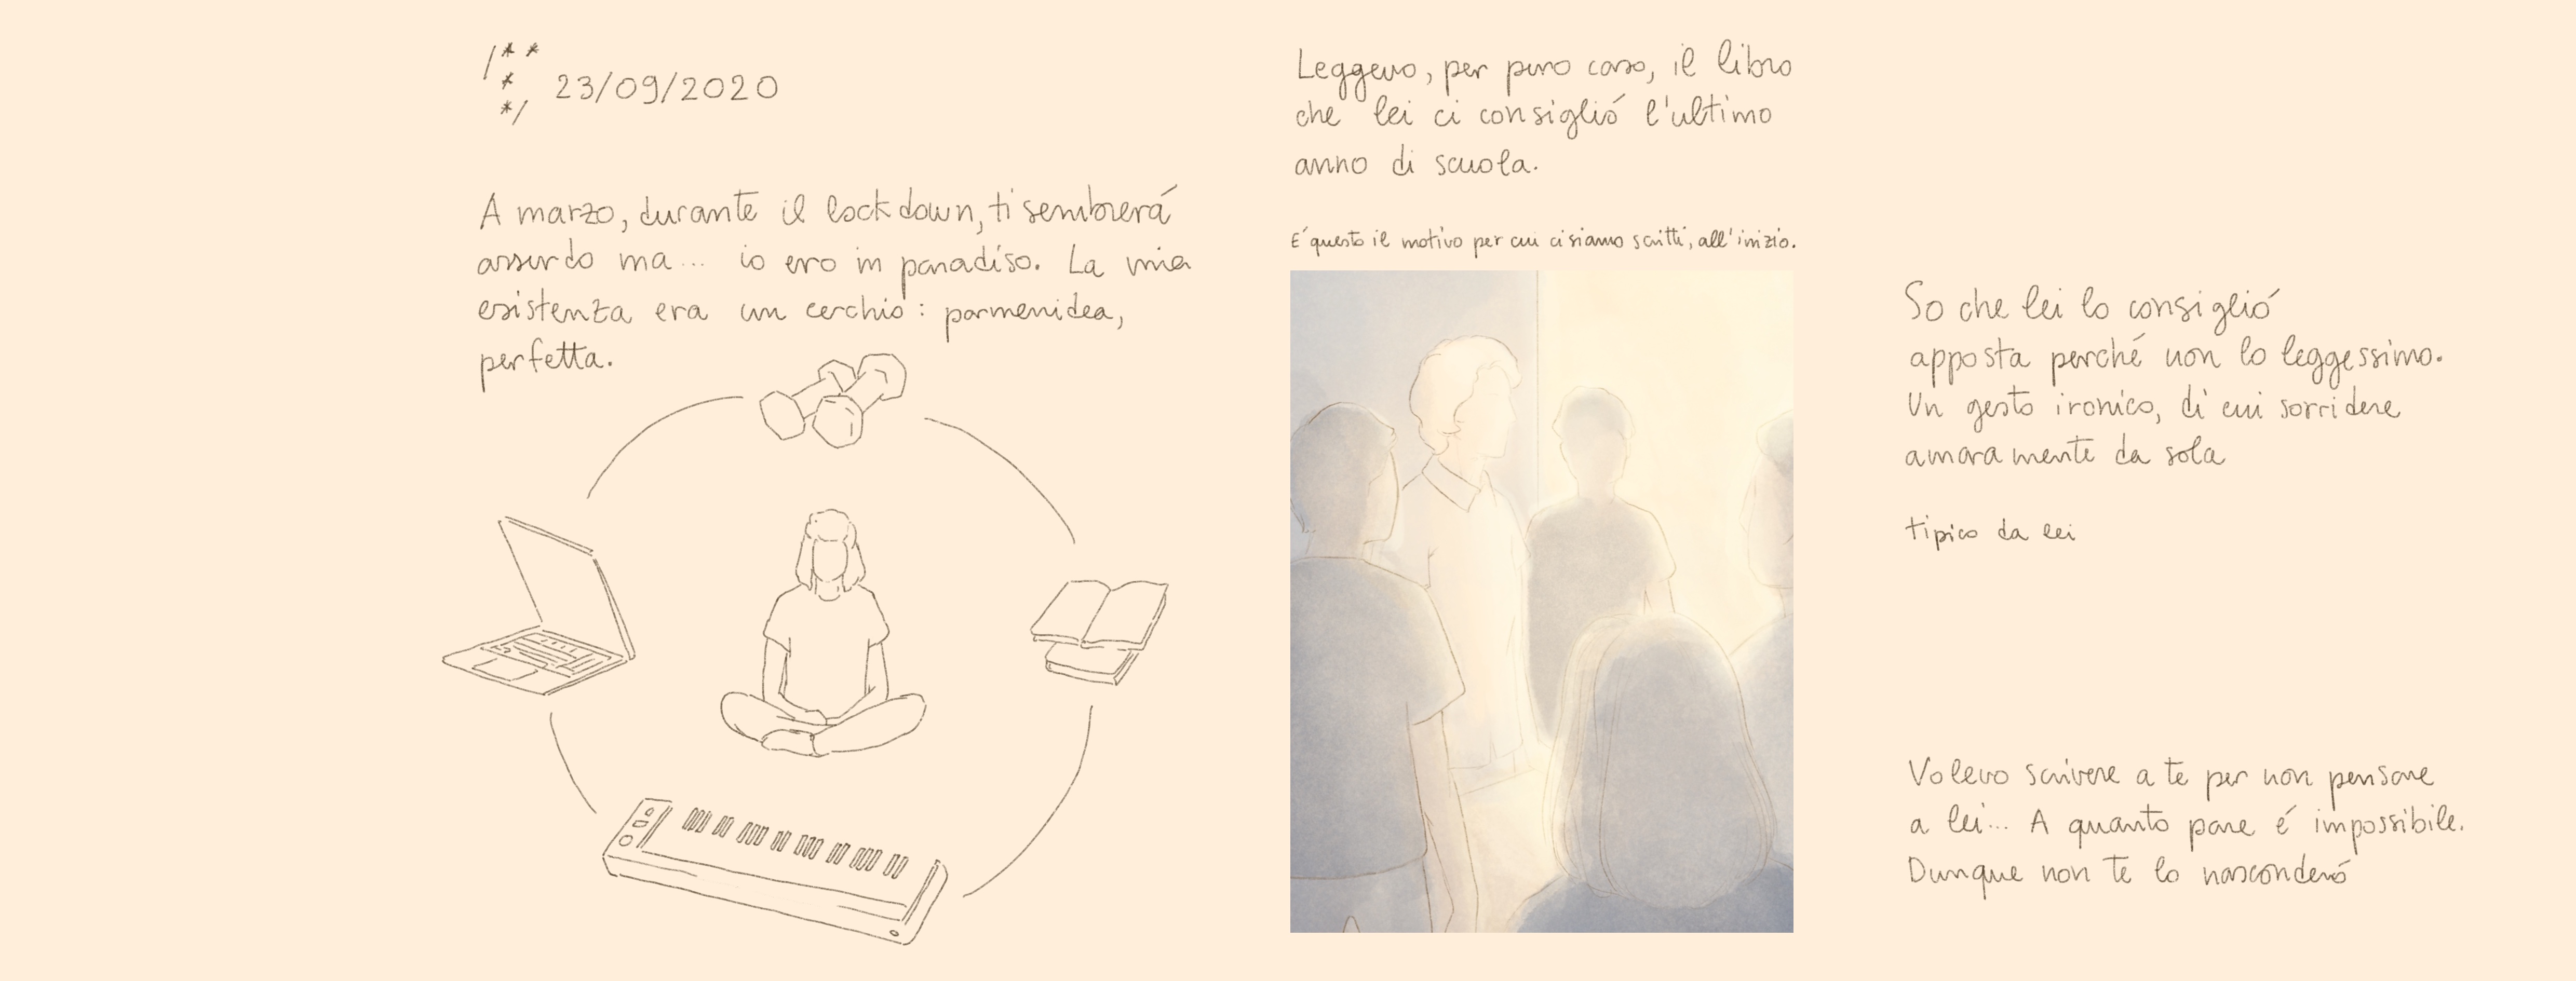 /**
* 23/09/2020
*/
A marzo, durante il lockdown, ti sembrerá
assurdo ma... io ero in paradiso. La mia
esistenza era un cerchio: parmenidea,
perfetta.
Leggevo, per puro caso, il libro
che lei ci consiglió l'ultimo
anno di scuola.
E' questo il motivo per cui ci siamo scritti, all'inizio.
So che lei lo consiglió
apposta perché non lo leggessimo.
Un gesto ironico, di cui sorridere
amaramente da sola
tipico da lei
Volevo scrivere a te per non pensare
a lei... A quanto pare é impossibile.
Dunque non te lo nasconderó